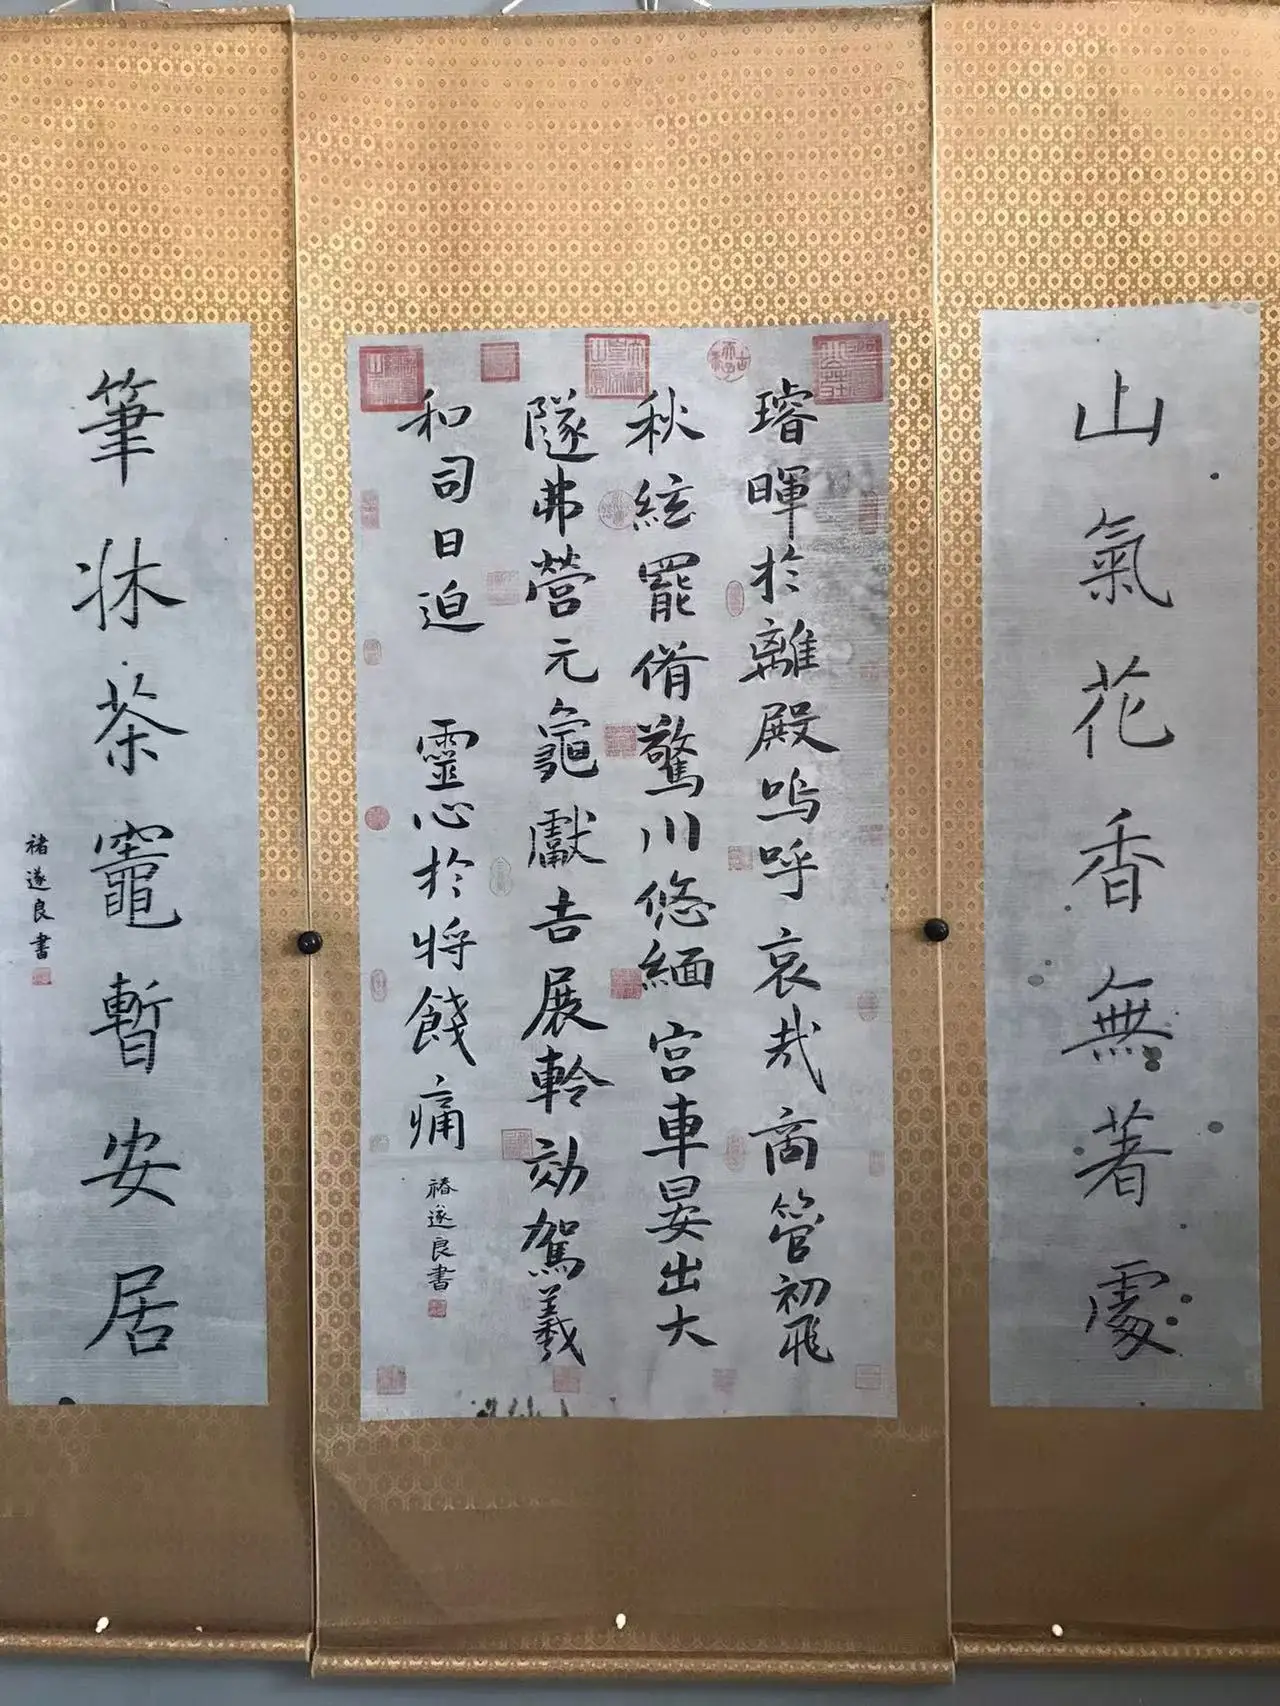 山氣花香無著處
璿暉於離殿嗚呼哀哉商管初飛
秋絃罷侑驚川悠緬宮車晏出大
隧弗營元龜獻吉展軨効駕羲
和司日迫靈心於將餞痛
褚遂良書
筆牀茶竈暫安居
褚遂良書